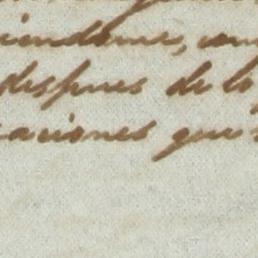 iendome, con
despues de lo
caciones que